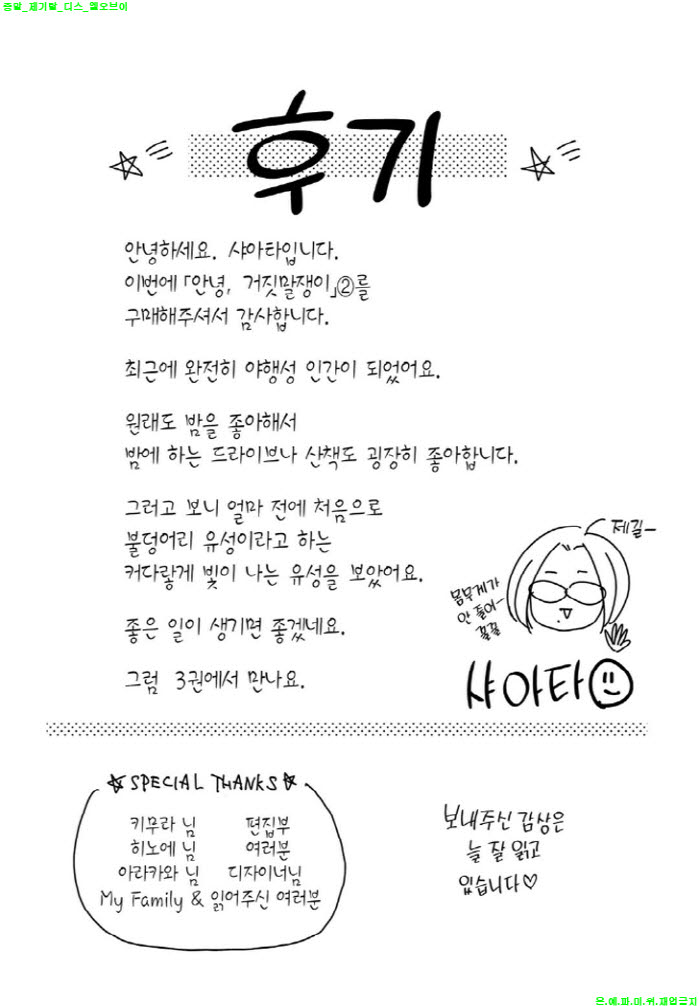 증말_제기랄_디스_엘오브이
후기
안녕하세요. 샤아타입니다.
이번에 「안녕, 거짓말쟁이」②를
구매해주셔서 감사합니다.
최근에 완전히 야행성 인간이 되었어요.
원래도 밤을 좋아해서
밤에 하는 드라이브나 산책도 굉장히 좋아합니다.
그러고 보니 얼마 전에 처음으로
불덩어리 유성이라고 하는
커다랗게 빛이 나는 유성을 보았어요.
좋은 일이 생기면 좋겠네요.
그럼 3권에서 만나요.
제길~
몸무게가
안 줄어~
꿀꿀
샤아타
SPECIAL THANKS
키무라 님 편집부
히노에 님 여러분
아라카와 님 디자이너님
My Family & 읽어주신 여러분
보내주신 감상은
늘 잘 읽고
있습니다♡
은.에.파.마.위.재업금지